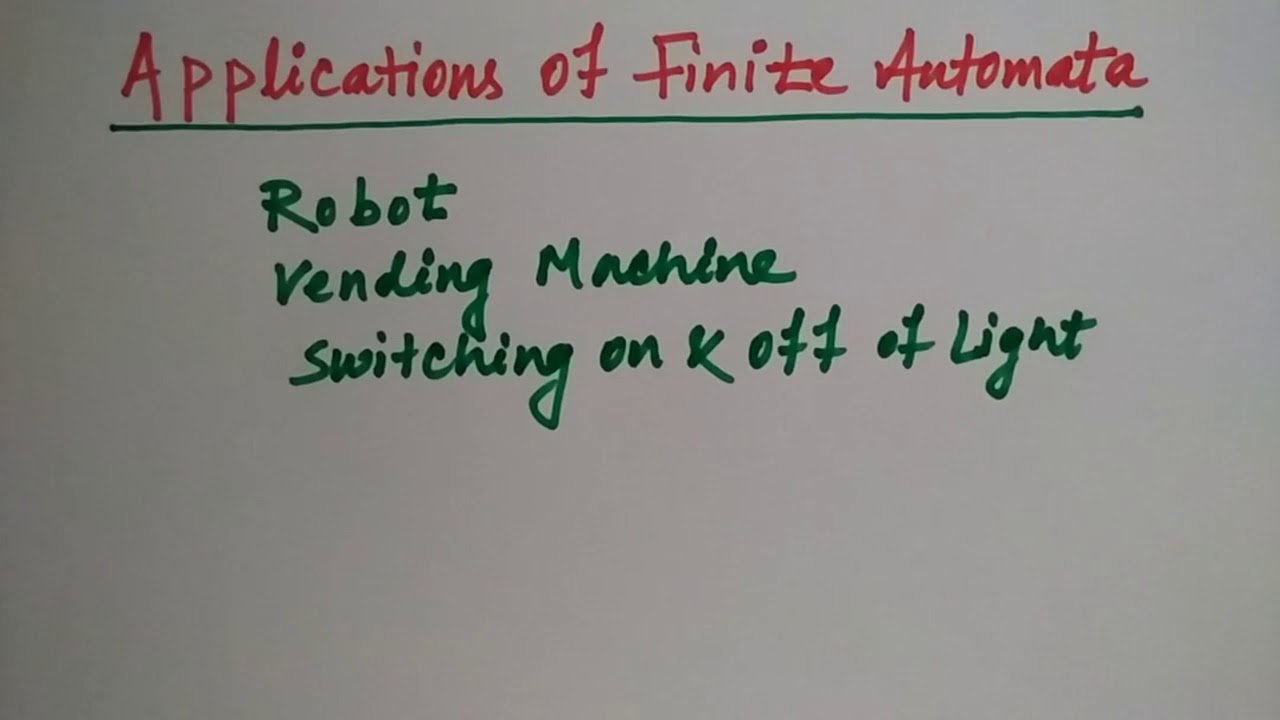 Applications of Finite Automata
Robot
Vending Machine
Switching on & off of Light